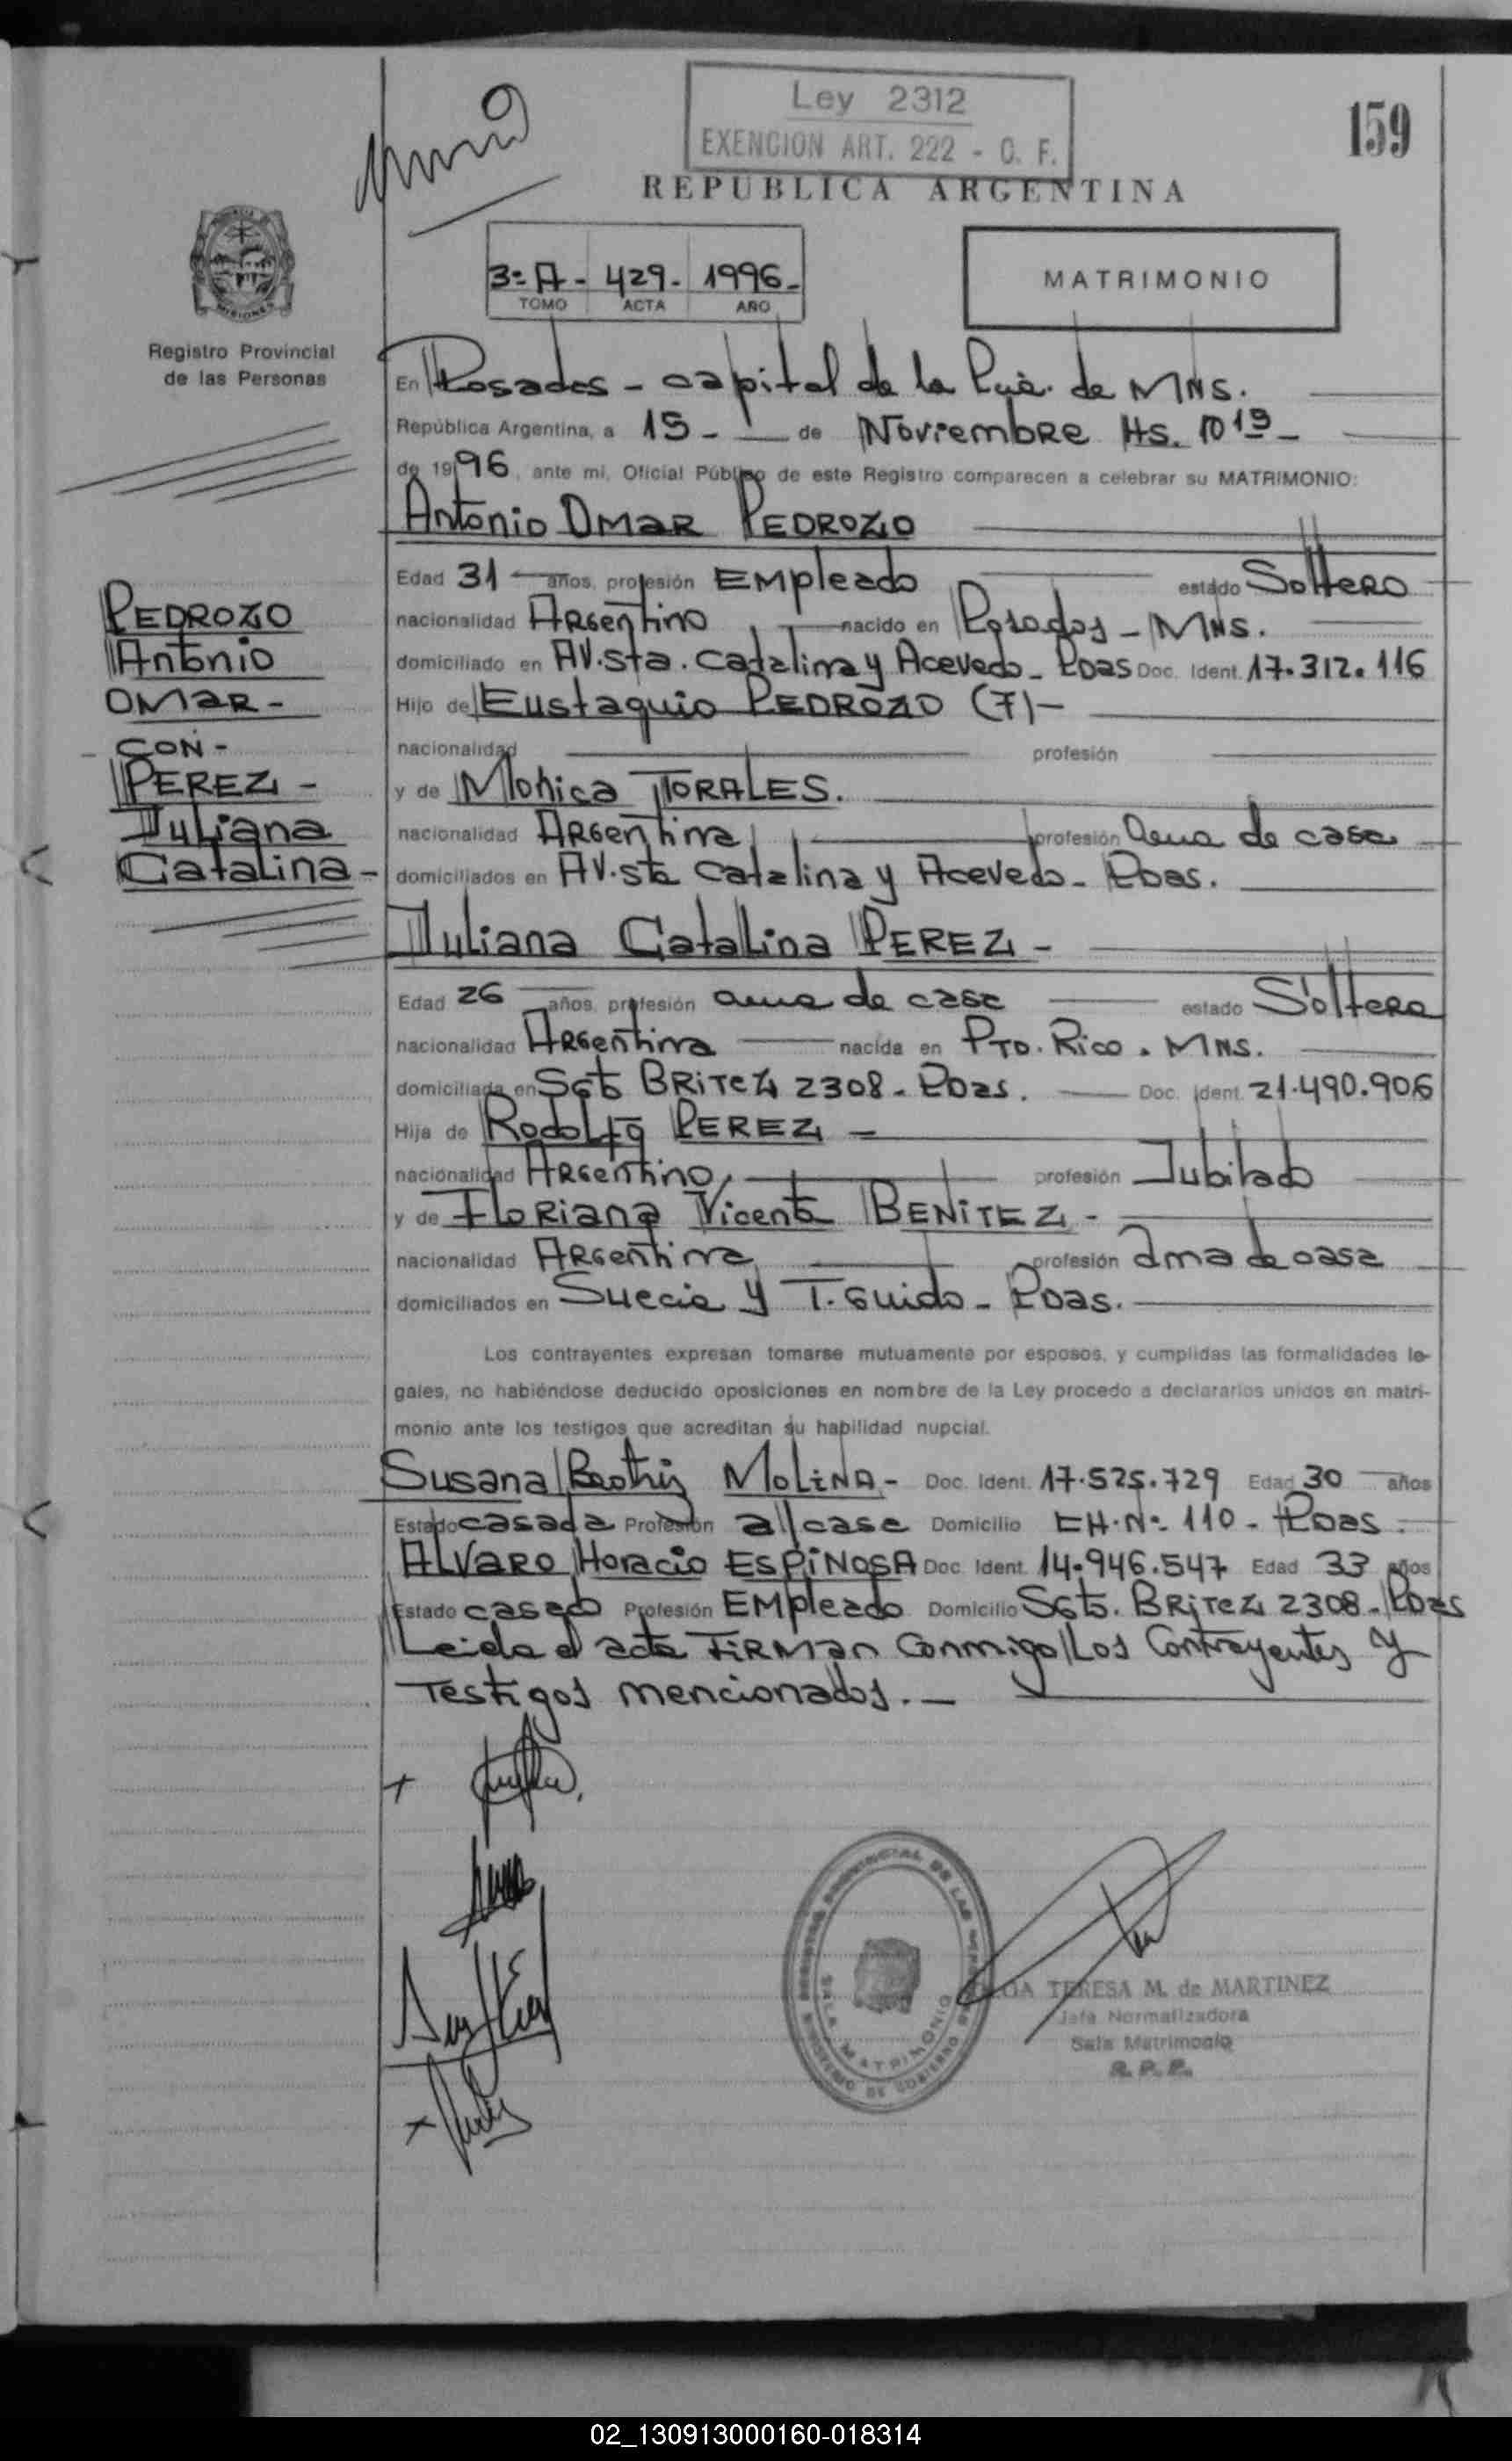 Ley 2312
EXENCION ART. 222 - C. F.
159
REPUBLICA ARGENTINA
3º A - 429 - 1996 -
TOMO ACTA AÑO
MATRIMONIO
MISIONES
Registro Provincial
de las Personas
En Posadas - capital de la Pcia. de MNS.
República Argentina, a 15 - de Noviembre Hs. 10 19 -
de 1996, ante mi, Oficial Público de este Registro comparecen a celebrar su MATRIMONIO:
Antonio Omar PEDROZO
Edad 31 años, profesión Empleado estado Soltero
nacionalidad Argentino nacido en Posadas - MNS.
domiciliado en AV. Sta. Catalina y Acevedo - Pdas Doc. Ident. 17.312.116
Hijo de Eustaquio PEDROZO (F) -
nacionalidad profesión
y de Monica TORALES.
nacionalidad Argentina profesión Ama de casa
domiciliados en AV. Sta Catalina y Acevedo - Pdas.
PEDROZO
Antonio
OMAR -
- CON -
PEREZ -
Juliana
Catalina -
Juliana Catalina PEREZ -
Edad 26 años, profesión ama de casa estado Soltera
nacionalidad Argentina nacida en Pto. Rico. MNS.
domiciliada en Sgto BRITEZ 2308 - Pdas. Doc. Ident. 21.490.906
Hija de Rodolfo PEREZ -
nacionalidad Argentino profesión Jubilado
y de Floriana Vicenta BENITEZ -
nacionalidad Argentina profesión ama de casa
domiciliados en Suecia y T. Guido - Pdas.
Los contrayentes expresan tomarse mutuamente por esposos, y cumplidas las formalidades le-
gales, no habiéndose deducido oposiciones en nombre de la Ley procedo a declararlos unidos en matri-
monio ante los testigos que acreditan su habilidad nupcial.
Susana Beatriz MOLINA - Doc. Ident. 17.525.729 Edad 30 años
Estado casada Profesión a/casa Domicilio CH. Nº 110 - Pdas.
ALVARO Horacio ESPINOSA Doc. Ident. 14.946.547 Edad 33 años
Estado casado Profesión Empleado Domicilio Sgto. BRITEZ 2308 - Pdas
Leida el acta FIRMAN Conmigo Los Contrayentes y
Testigos mencionados. -
REGISTRO PROVINCIAL DE LAS PERSONAS
SALA MATRIMONIO
MINISTERIO DE GOBIERNO
TERESA M. de MARTINEZ
Jefa Normalizadora
Sala Matrimonio
R. P. P.
02_130913000160-018314